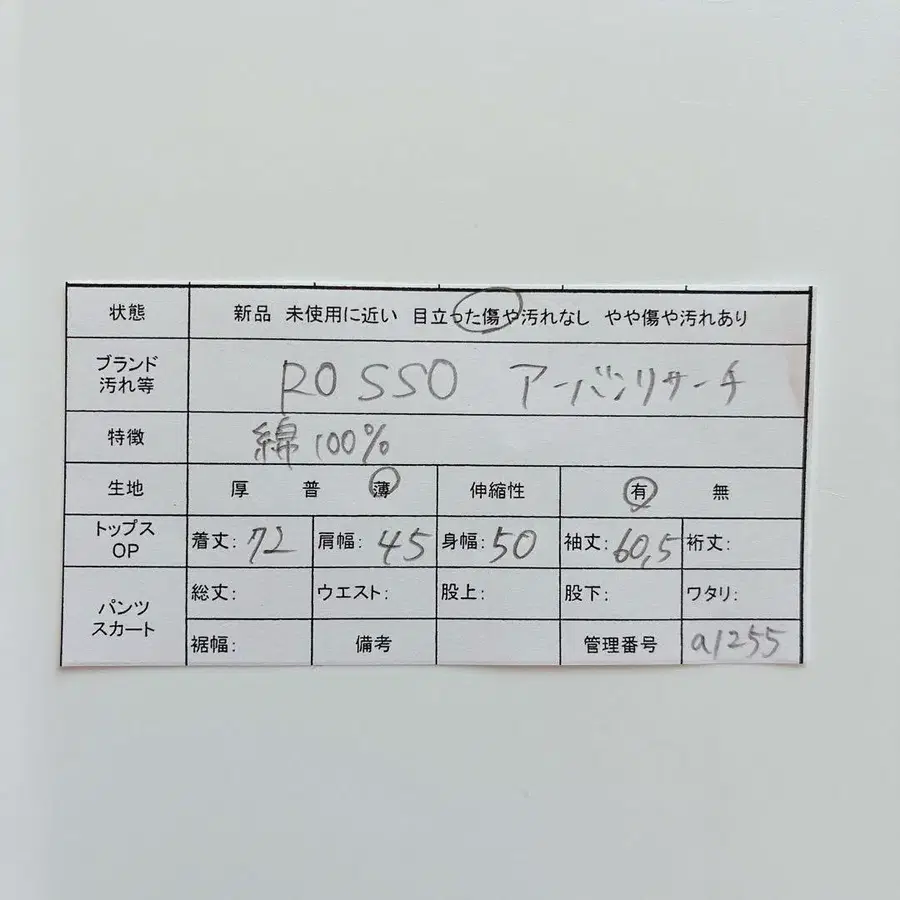 状態 新品 未使用に近い 目立った傷や汚れなし やや傷や汚れあり
ブランド
汚れ等 ROSSO アーバンリサーチ
特徴 綿100%
生地 厚 普 薄 伸縮性 有 無
トップス
OP 着丈: 72 肩幅: 45 身幅: 50 袖丈: 60,5 裄丈:
パンツ
スカート 総丈: ウエスト: 股上: 股下: ワタリ:
裾幅: 備考 管理番号 a1255